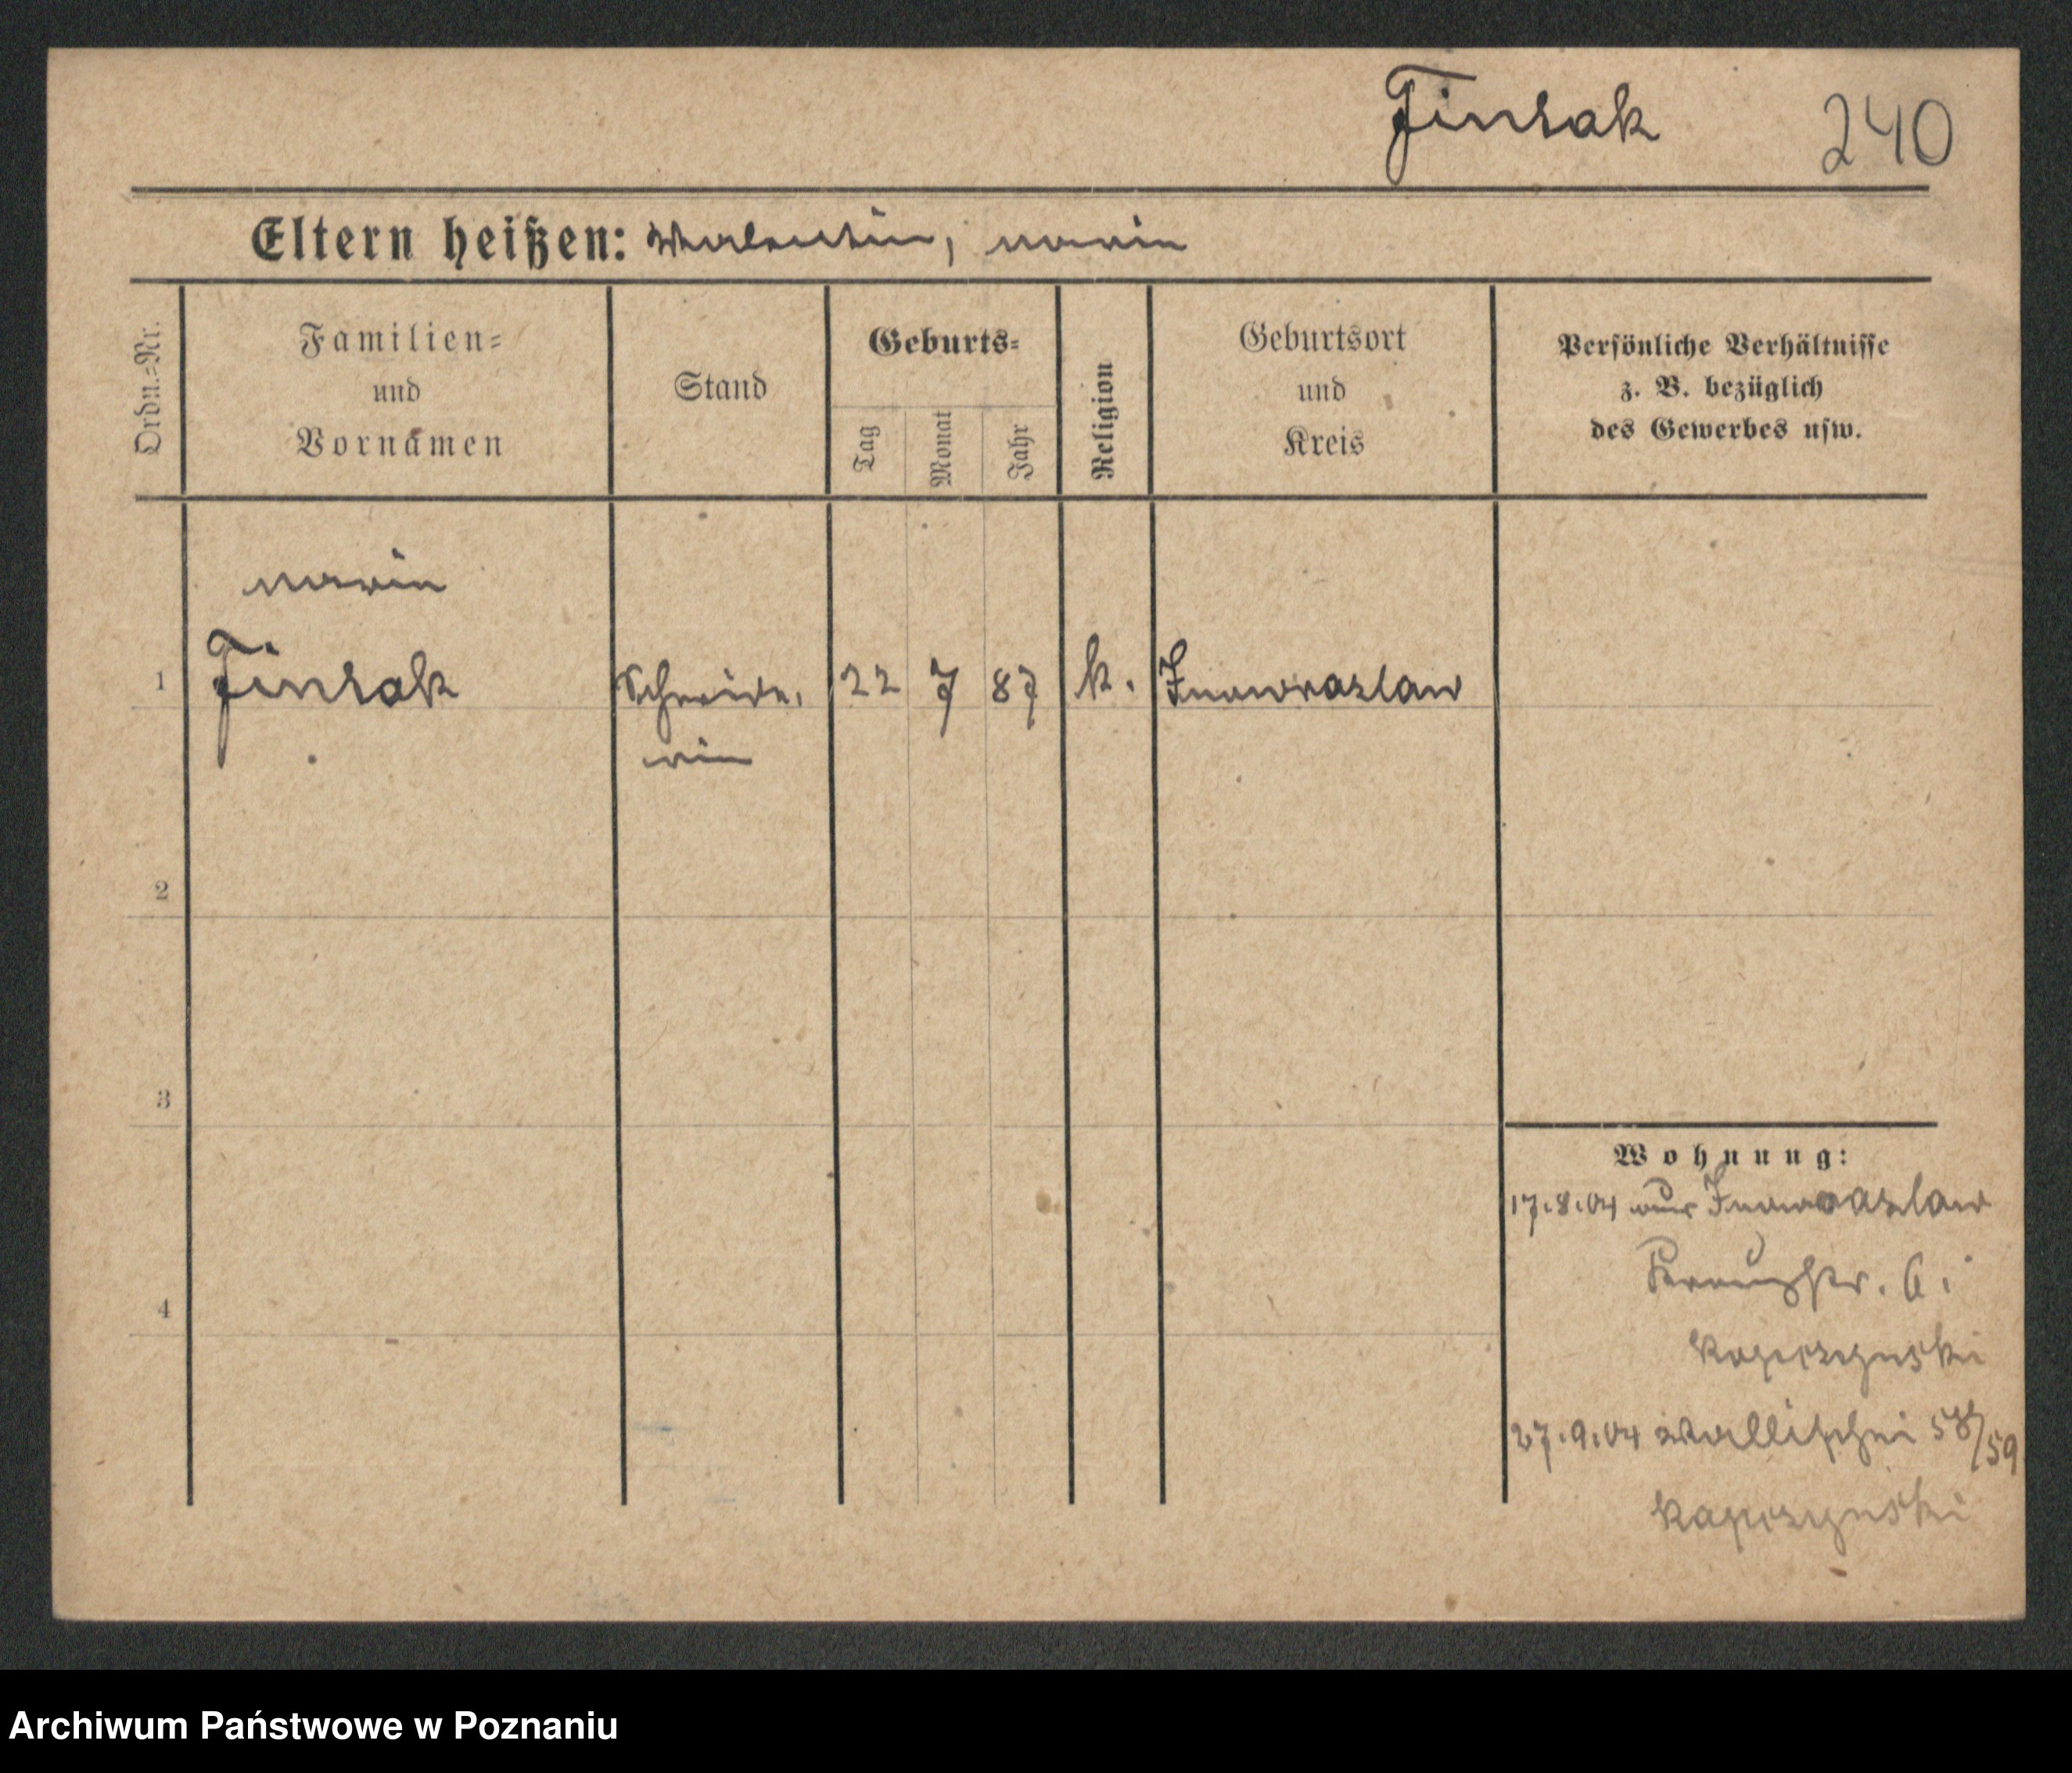 Finsak 240
Eltern heißen: Valentin, Marie
Ordn.=Nr.
Familien=
und
Vornamen
Stand
Geburts=
Tag
Monat
Jahr
Religion
Geburtsort
und
Kreis
Persönliche Verhältnisse
z. B. bezüglich
des Gewerbes usw.
Marie
1 Finsak Schneide, 22 7 87 k. Inowrazlaw
rin
2
3
4
Wohnung:
17.8.04 aus Inowrazlaw
6.
Kapczynski
27.9.04 Wallischei 58/59
Kapczynski
Archiwum Państwowe w Poznaniu